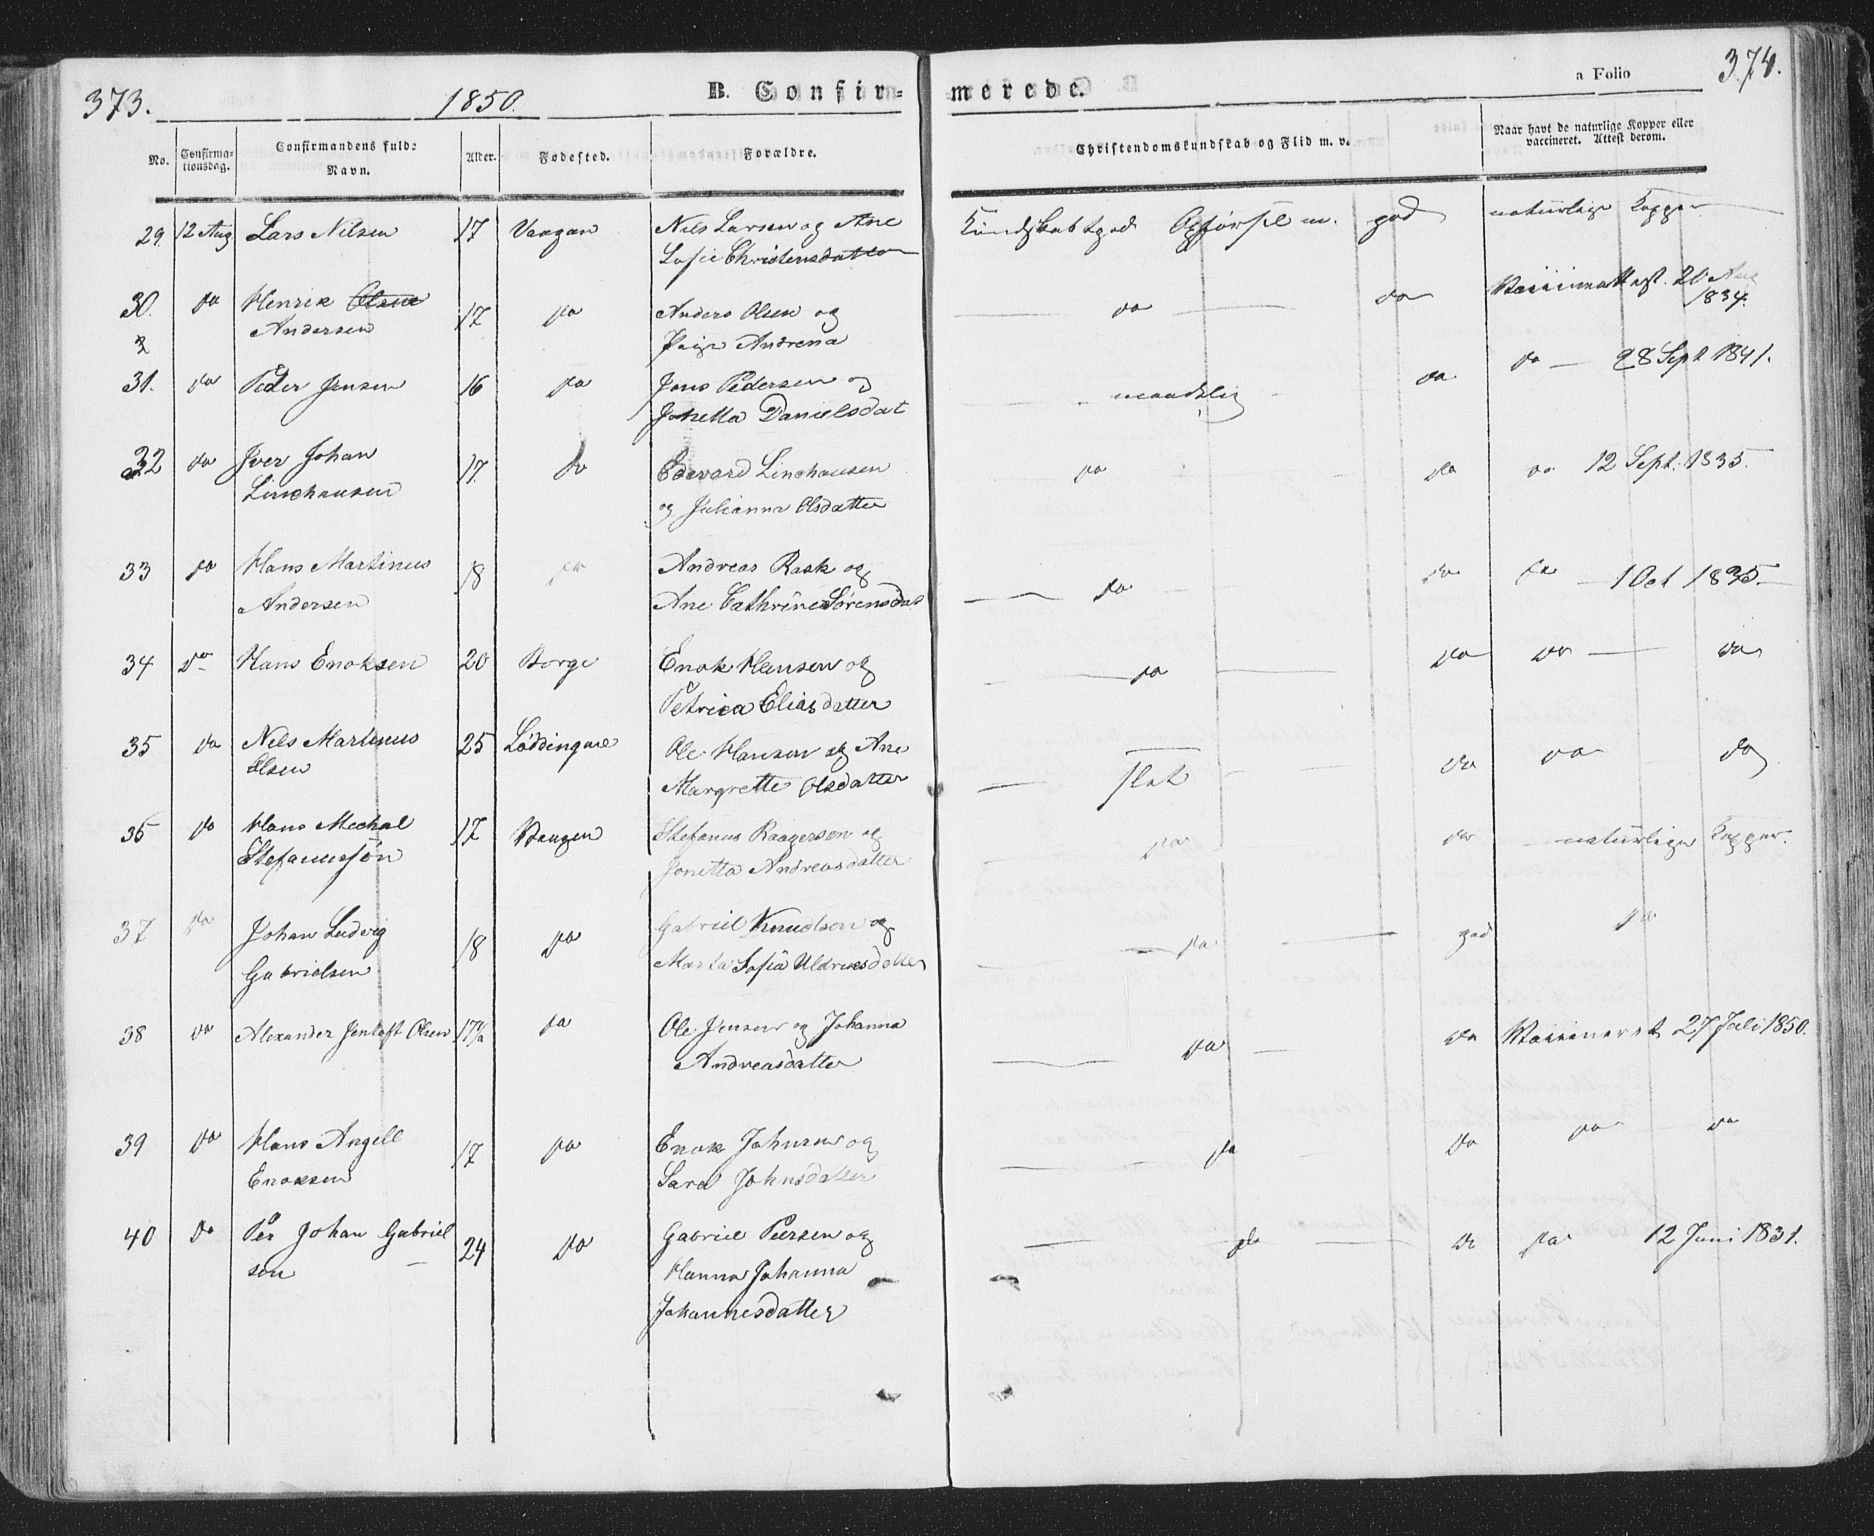 373. 1850. B. Confir- merede. a Folio 374.
No. Confirma-tionsdag. Confirmandens fulde Navn. Alder. Fødested. Forældre. Christendomskundskab og Flid m. v. Naar havt de naturlige Kopper eller vaccineret. Attest derom.
29. 12 Aug Lars Nilsen 17 Vaagan Nils Larsen og Ane Kundskab tgod Opførsel m. god naturlige Kopper
Sofie Christensdatter
30. do Henrik Olsen 17 do Anders Olsen og do do Vaccineattest. 20 Aug
Andersen Andrena 1834.
31. do Peder Jensen 16 do Jens Pedersen og maadelig do do 28 Sept 1841.
Jonetta Danielsdat
32 do Iver Johan 17. do Edevard Linchausen do do do 12 Sept. 1835.
Linchausen og Julianna Olsdatter
33 do Hans Martinus 18 do Andreas Rask og do do do 1 Oct 1835
Andersen Ane Cathrine Sørensdat
34 do Hans Enoksen 20 Borge Enok Hansen og do do do do
Petrica Eliasdatter
35 do Nels Martinus 25 Løddingen Ole Hansen og Ane slet do do do
Olsen Margrette Olsdatter
36 do Hans Mechal 17 Vaagen Stefanus Raagersen og do do naturlige Kopper.
Stefanussøn Jonetta Andreasdatter
37 do Johan Ludvig 18 do Gabriel Knudsen og do god do
Gabrielsen Marta Sofia Uldriksdatter
38 do Alexander Jentoft Olsen 17½ do Ole Jensen og Johanna do do Vaccineret 27 Juli 1850.
Andreasdatter
39 do Hans Angell 17 do Enok Johnsen og do do do do
Enoksen Sara Johnsdatter
40 do Per Johan Gabriel 24 do Gabriel Persen og do do do 12 Juni 1831.
sen Hanna Johanna
Johannesdatter